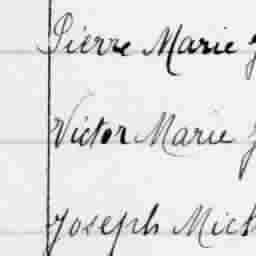 Pierre Marie
Victor Marie
Joseph